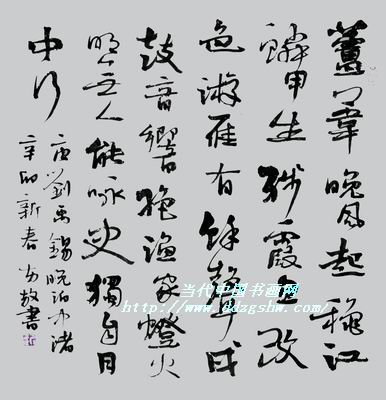 蘆葦晚風起穐江
鱗甲生殘霞忽改
色游雁有餘聲戍
鼓音響絕漁家燈火
明无人能詠史獨自月
中行
唐劉禹錫晚泊牛渚
辛卯新春
書
当代中国书画网
http://www.ddzgshw.com/